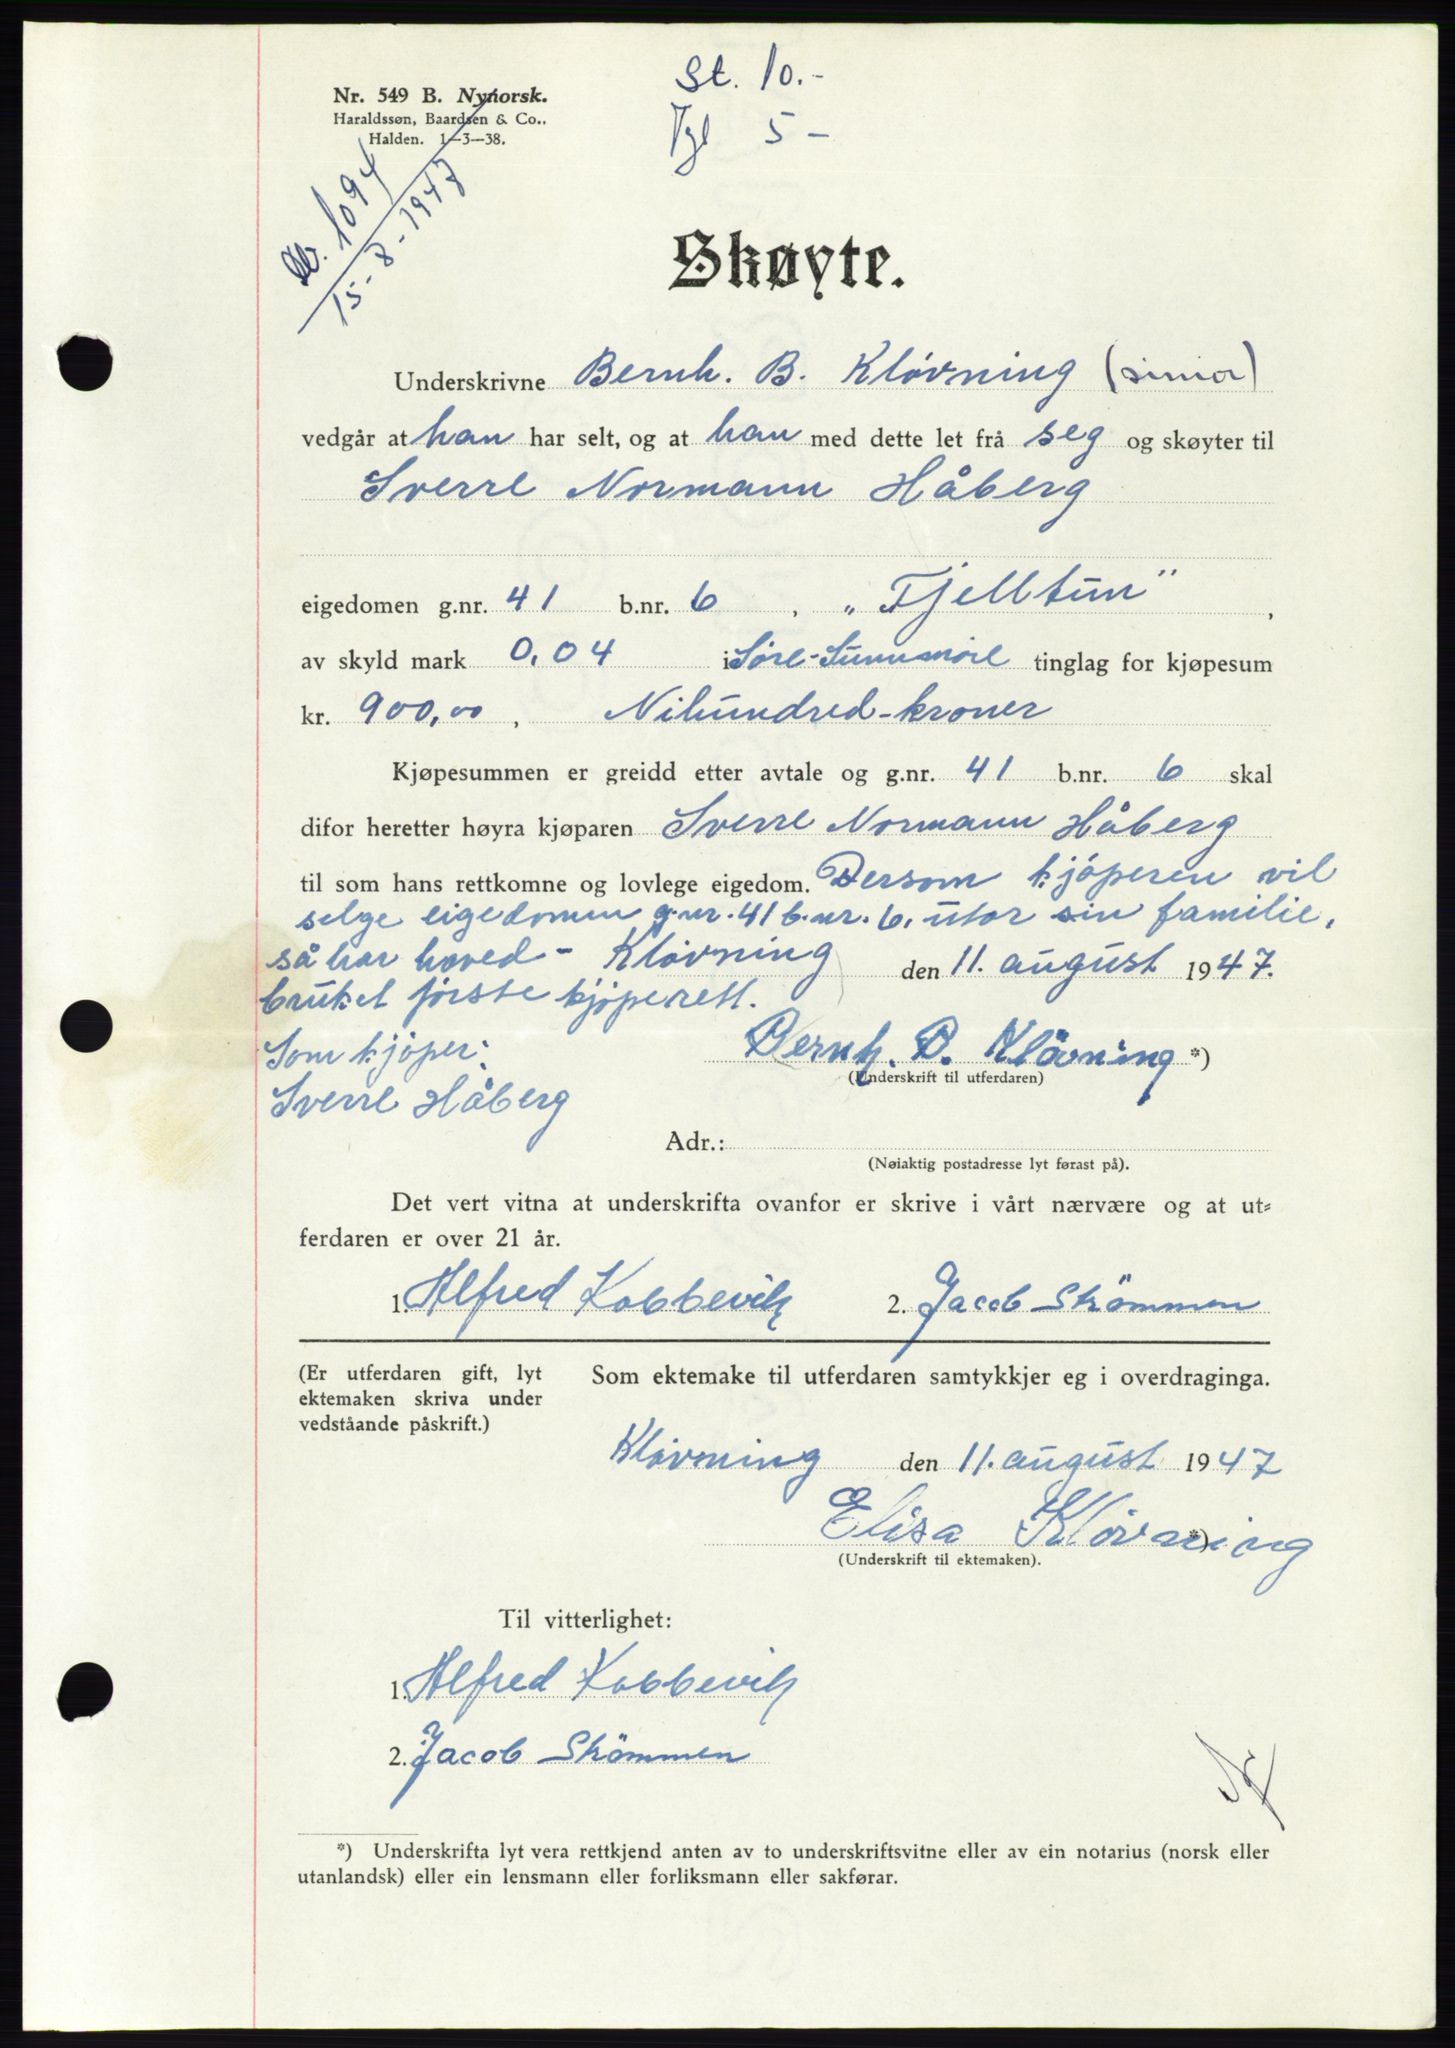 St. 10.-
Tgl 5 -
Nr. 549 B. Nynorsk.
Haraldssøn, Baardsen & Co.,
Halden. 1-3-38.
1094
15-8-1947
Skøyte.
Underskrivne Bernh. B. Kløvning (sinior)
vedgår at han har selt, og at han med dette let frå seg og skøyter til
Sverre Normann Håberg
eigedomen g.nr. 41 b.nr. 6, „Fjelltun",
av skyld mark 0,04 i Søre-Sunnmøre tinglag for kjøpesum
kr. 900,00, Nihundred-kroner
Kjøpesummen er greidd etter avtale og g.nr. 41 b.nr. 6 skal
difor heretter høyra kjøparen Sverre Normann Håberg
til som hans rettkomne og lovlege eigedom. Dersom kjøperen vil
selge eigedomen g.nr. 41 b.nr. 6, utor sin familie,
så har hoved- Kløvning den 11. august 1947.
bruket første kjøperett.
Som kjøper:
Bernh. B. Klövning *)
(Underskrift til utferdaren)
Sverre Håberg
Adr.:
(Nøiaktig postadresse lyt førast på).
Det vert vitna at underskrifta ovanfor er skrive i vårt nærvære og at ut-
ferdaren er over 21 år.
1. Alfred Kobbevik 2. Jacob Skömmen
(Er utferdaren gift, lyt
ektemaken skriva under
vedståande påskrift.)
Som ektemake til utferdaren samtykkjer eg i overdraginga.
Kløvning den 11. august 1947
Elisa Kløvning *)
(Underskrift til ektemaken).
Til vitterlighet:
1. Alfred Kobbevik
2. Jacob Skömmen
*) Underskrifta lyt vera rettkjend anten av to underskriftsvitne eller av ein notarius (norsk eller
utanlandsk) eller ein lensmann eller forliksmann eller sakførar.